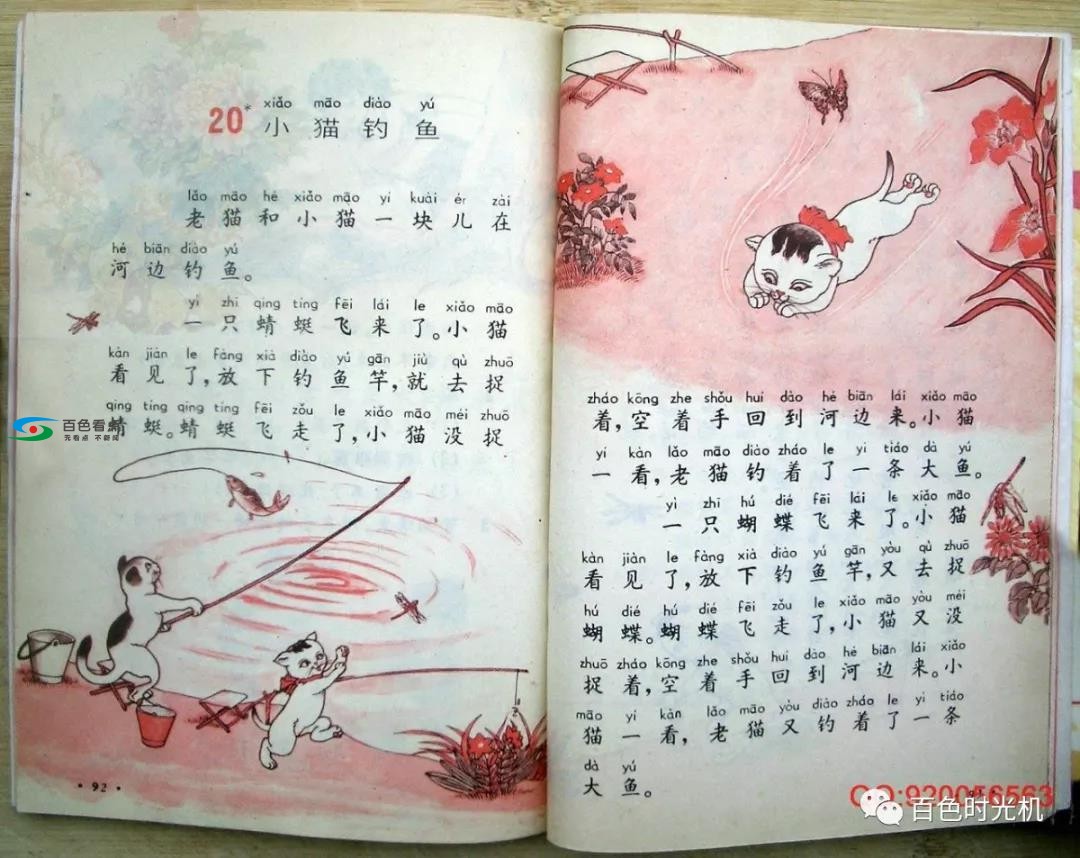 20* xiǎo māo diào yú
小猫钓鱼
lǎo māo hé xiǎo māo yí kuài ér zài
老猫和小猫一块儿在
hé biān diào yú
河边钓鱼。
yì zhī qīng tíng fēi lái le xiǎo māo
一只蜻蜓飞来了。小猫
kàn jiàn le fàng xià diào yú gān jiù qù zhuō
看见了,放下钓鱼竿,就去捉
qīng tíng qīng tíng fēi zǒu le xiǎo māo méi zhuō
蜻蜓。蜻蜓飞走了,小猫没捉
百色看点
先看点 不新闻
·92·
zháo kōng zhe shǒu huí dào hé biān lái xiǎo māo
着,空着手回到河边来。小猫
yí kàn lǎo māo diào zháo le yì tiáo dà yú
一看,老猫钓着了一条大鱼。
yì zhī hú dié fēi lái le xiǎo māo
一只蝴蝶飞来了。小猫
kàn jiàn le fàng xià diào yú gān yòu qù zhuō
看见了,放下钓鱼竿,又去捉
hú dié hú dié fēi zǒu le xiǎo māo yòu méi
蝴蝶。蝴蝶飞走了,小猫又没
zhuō zháo kōng zhe shǒu huí dào hé biān lái xiǎo
捉着,空着手回到河边来。小
māo yí kàn lǎo māo yòu diào zháo le yì tiáo
猫一看,老猫又钓着了一条
dà yú
大鱼。
QQ:920056563
百色时光机